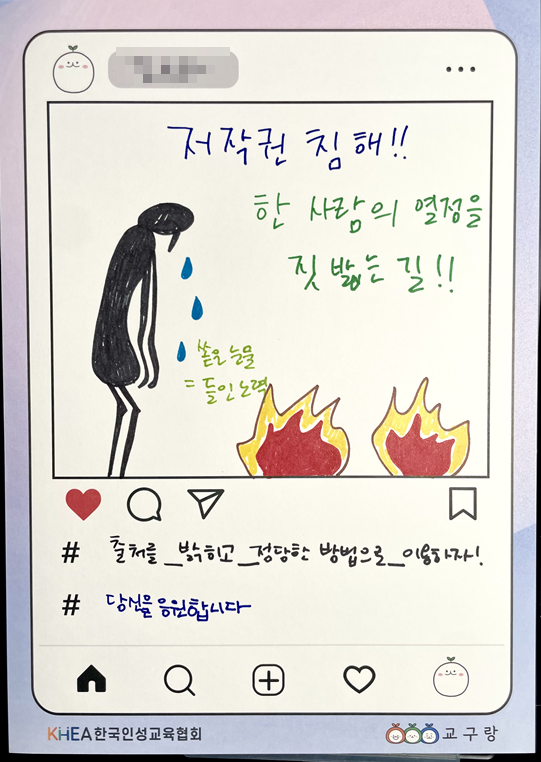 저작권 침해!!
한 사람의 열정을
짓 밟는 길!!
쏟은 눈물
= 들인 노력
# 출처를_밝히고_정당한 방법으로_이용하자!
# 당신을 응원합니다
KHEA한국인성교육협회
교구랑